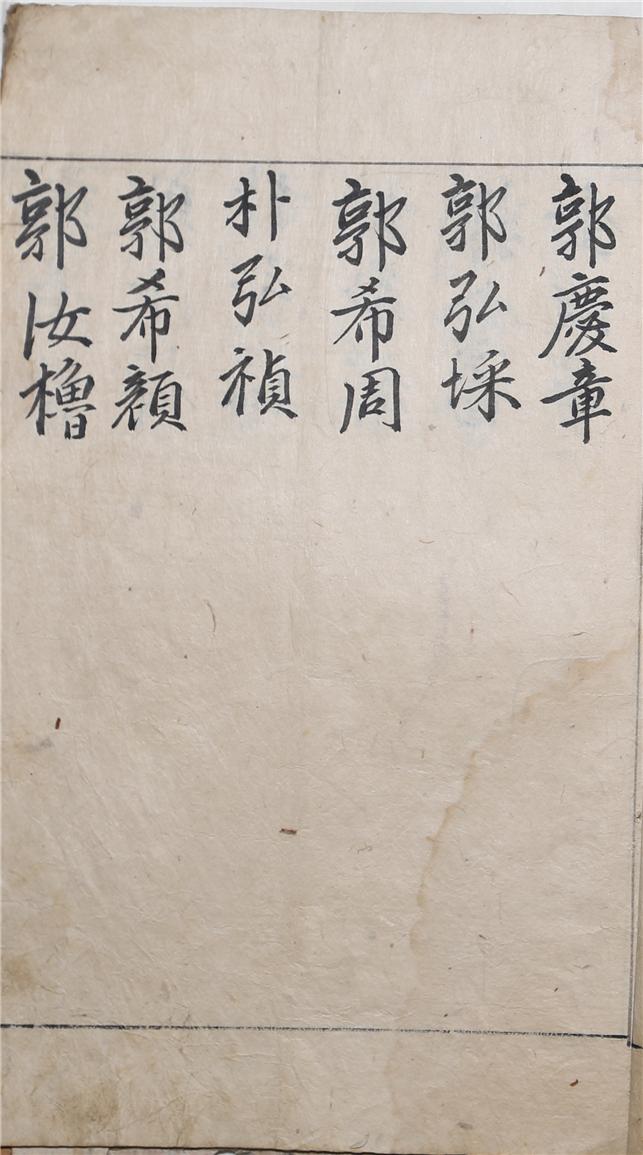 郭慶章
郭弘埰
郭希周
朴弘禎
郭希顔
郭汝櫓